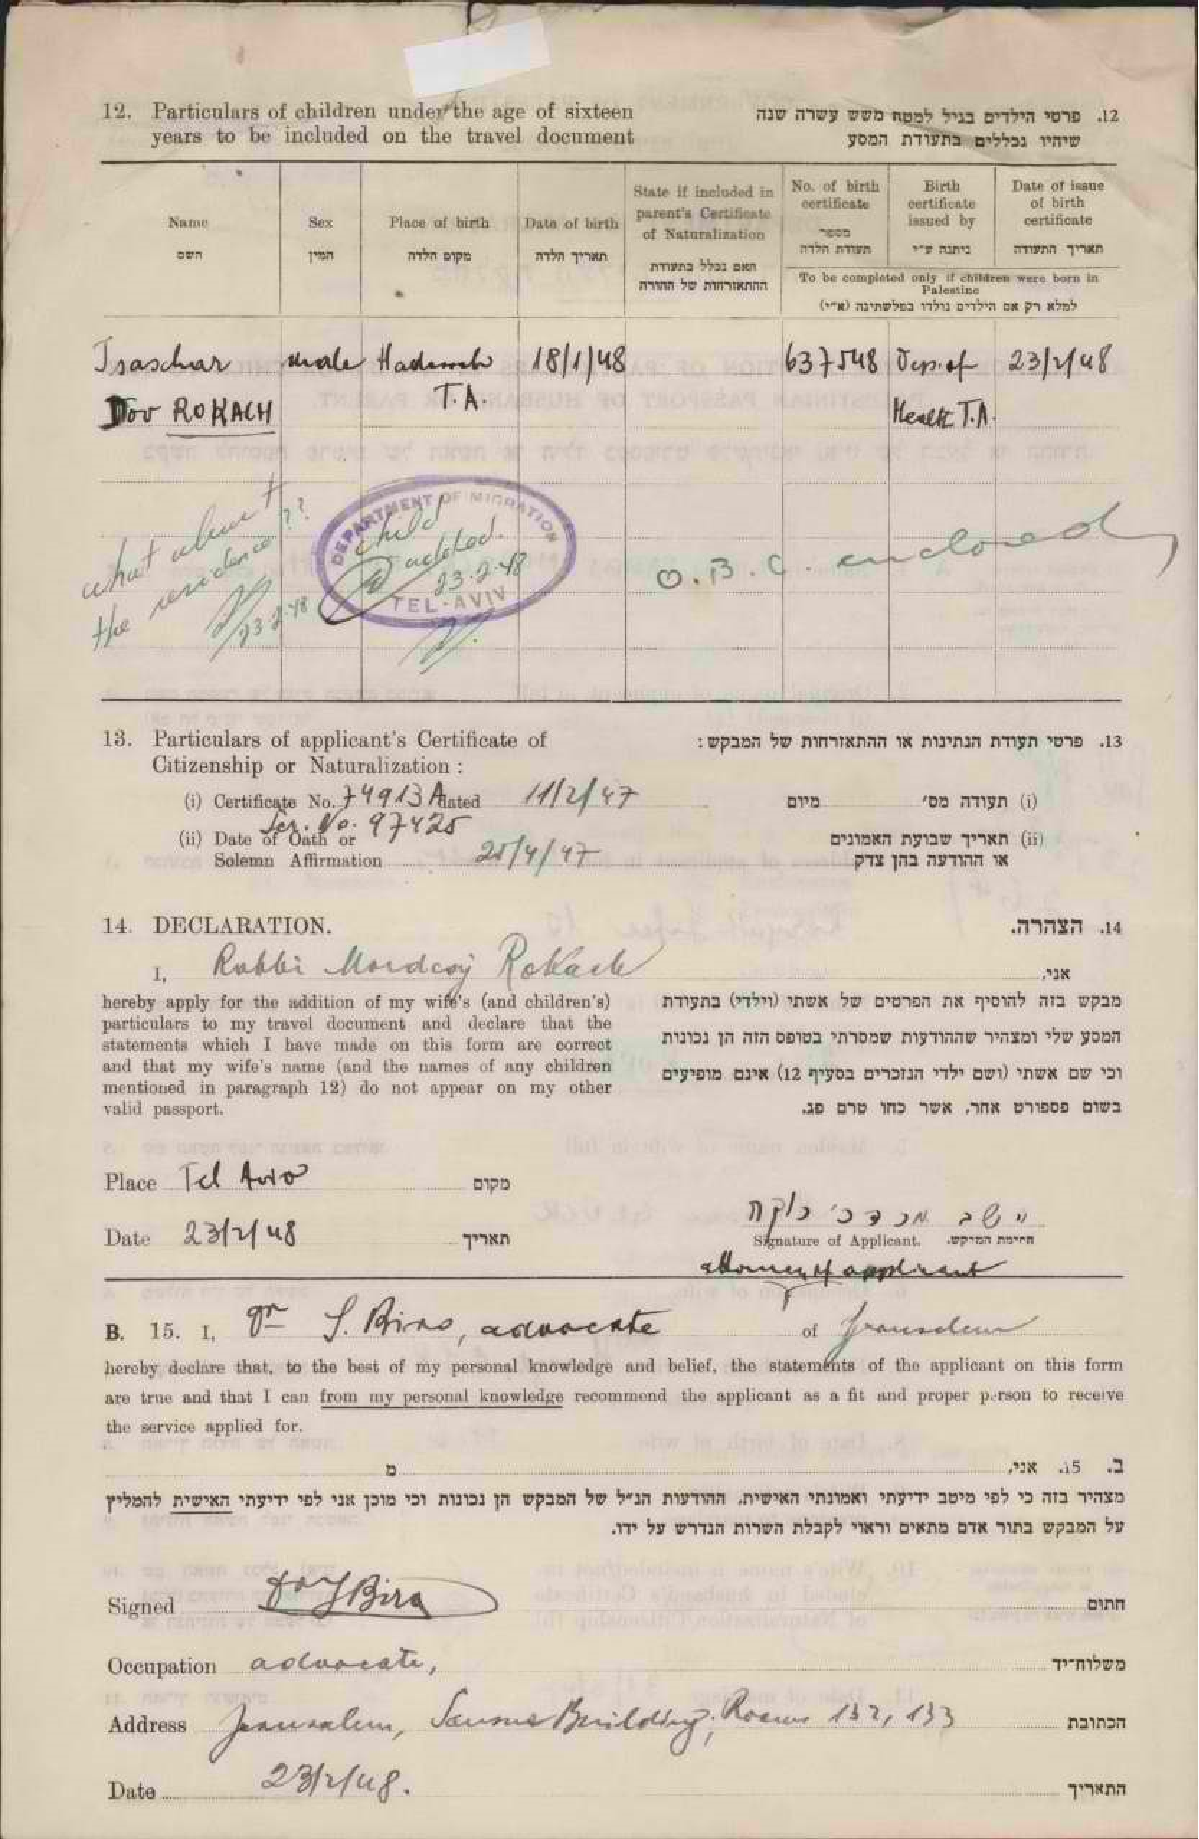 12. Particulars of children under the age of sixteen
years to be included on the travel document
12. פרטי הילדים בגיל למטה משש עשרה שנה
שיהיו נכללים בתעודת המסע
Name
השם
Sex
המין
Place of birth
מקום הלדה
Date of birth
תאריך הלדה
State if included in
parent's Certificate
of Naturalization
האם נכלל בתעודת
ההתאזרחות של ההורה
No. of birth
certificate
מספר
תעודת הלדה
Birth
certificate
issued by
ניתנה ע״י
Date of issue
of birth
certificate
תאריך התעודה
To be completed only if children were born in
Palestine
למלא רק אם הילדים נולדו בפלשתינה (א״י)
Isaschar male Hadassah 18/1/48 637548 Dep. of 23/2/48
Dov ROKACH T.A. Health T.A.
what about
the residence??
23-2-48
DEPARTMENT OF MIGRATION
TEL-AVIV
child
added.
23-2-48
O.B.C. enclosed
13. Particulars of applicant's Certificate of
Citizenship or Naturalization :
13. פרטי תעודת הנתינות או ההתאזרחות של המבקש:
(i) Certificate No. 74913A dated 11/2/47
(i) תעודה מס' מיום
Ser. No. 97425
(ii) Date of Oath or
Solemn Affirmation 25/4/47
(ii) תאריך שבועת האמונים
או ההודעה בהן צדק
14. DECLARATION.
14. הצהרה.
I, Rabbi Mordcaj Rokach
אני,
hereby apply for the addition of my wife's (and children's)
particulars to my travel document and declare that the
statements which I have made on this form are correct
and that my wife's name (and the names of any children
mentioned in paragraph 12) do not appear on my other
valid passport.
מבקש בזה להוסיף את הפרטים של אשתי (וילדי) בתעודת
המסע שלי ומצהיר שההודעות שמסרתי בטופס הזה הן נכונות
וכי שם אשתי (ושם ילדי הנזכרים בסעיף 12) אינם מופיעים
בשום פספורט אחר, אשר כחו טרם פג.
Place Tel Aviv מקום
Date 23/2/48 תאריך
מרדכי רוקח
Signature of Applicant. חתימת המבקש.
attorney of applicant
B. 15. I, Dr S. Biro, advocate of Jerusalem
hereby declare that, to the best of my personal knowledge and belief, the statements of the applicant on this form
are true and that I can from my personal knowledge recommend the applicant as a fit and proper person to receive
the service applied for.
ב. 15. אני, מ
מצהיר בזה כי לפי מיטב ידיעתי ואמונתי האישית, ההודעות הנ״ל של המבקש הן נכונות וכי מוכן אני לפי ידיעתי האישית להמליץ
על המבקש בתור אדם מתאים וראוי לקבלת השרות הנדרש על ידו.
Signed Biro חתום
Occupation advocate, משלוח־יד
Address Jerusalem, Building, Rooms 132, 133 הכתובת
Date 23/2/48. התאריך